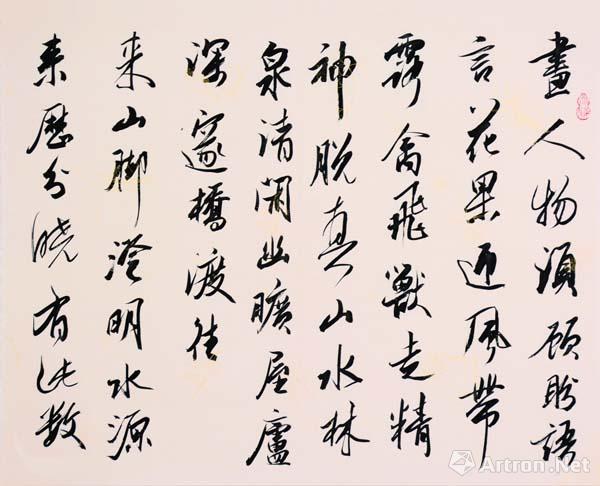 畫人物須顧盼語
言花果迎風帶
露禽飛獸走精
神脱真山水林
泉清閑幽曠屋廬
深邃橋渡往
来山脚澄明水源
来歷分曉有此數
Artron.Net